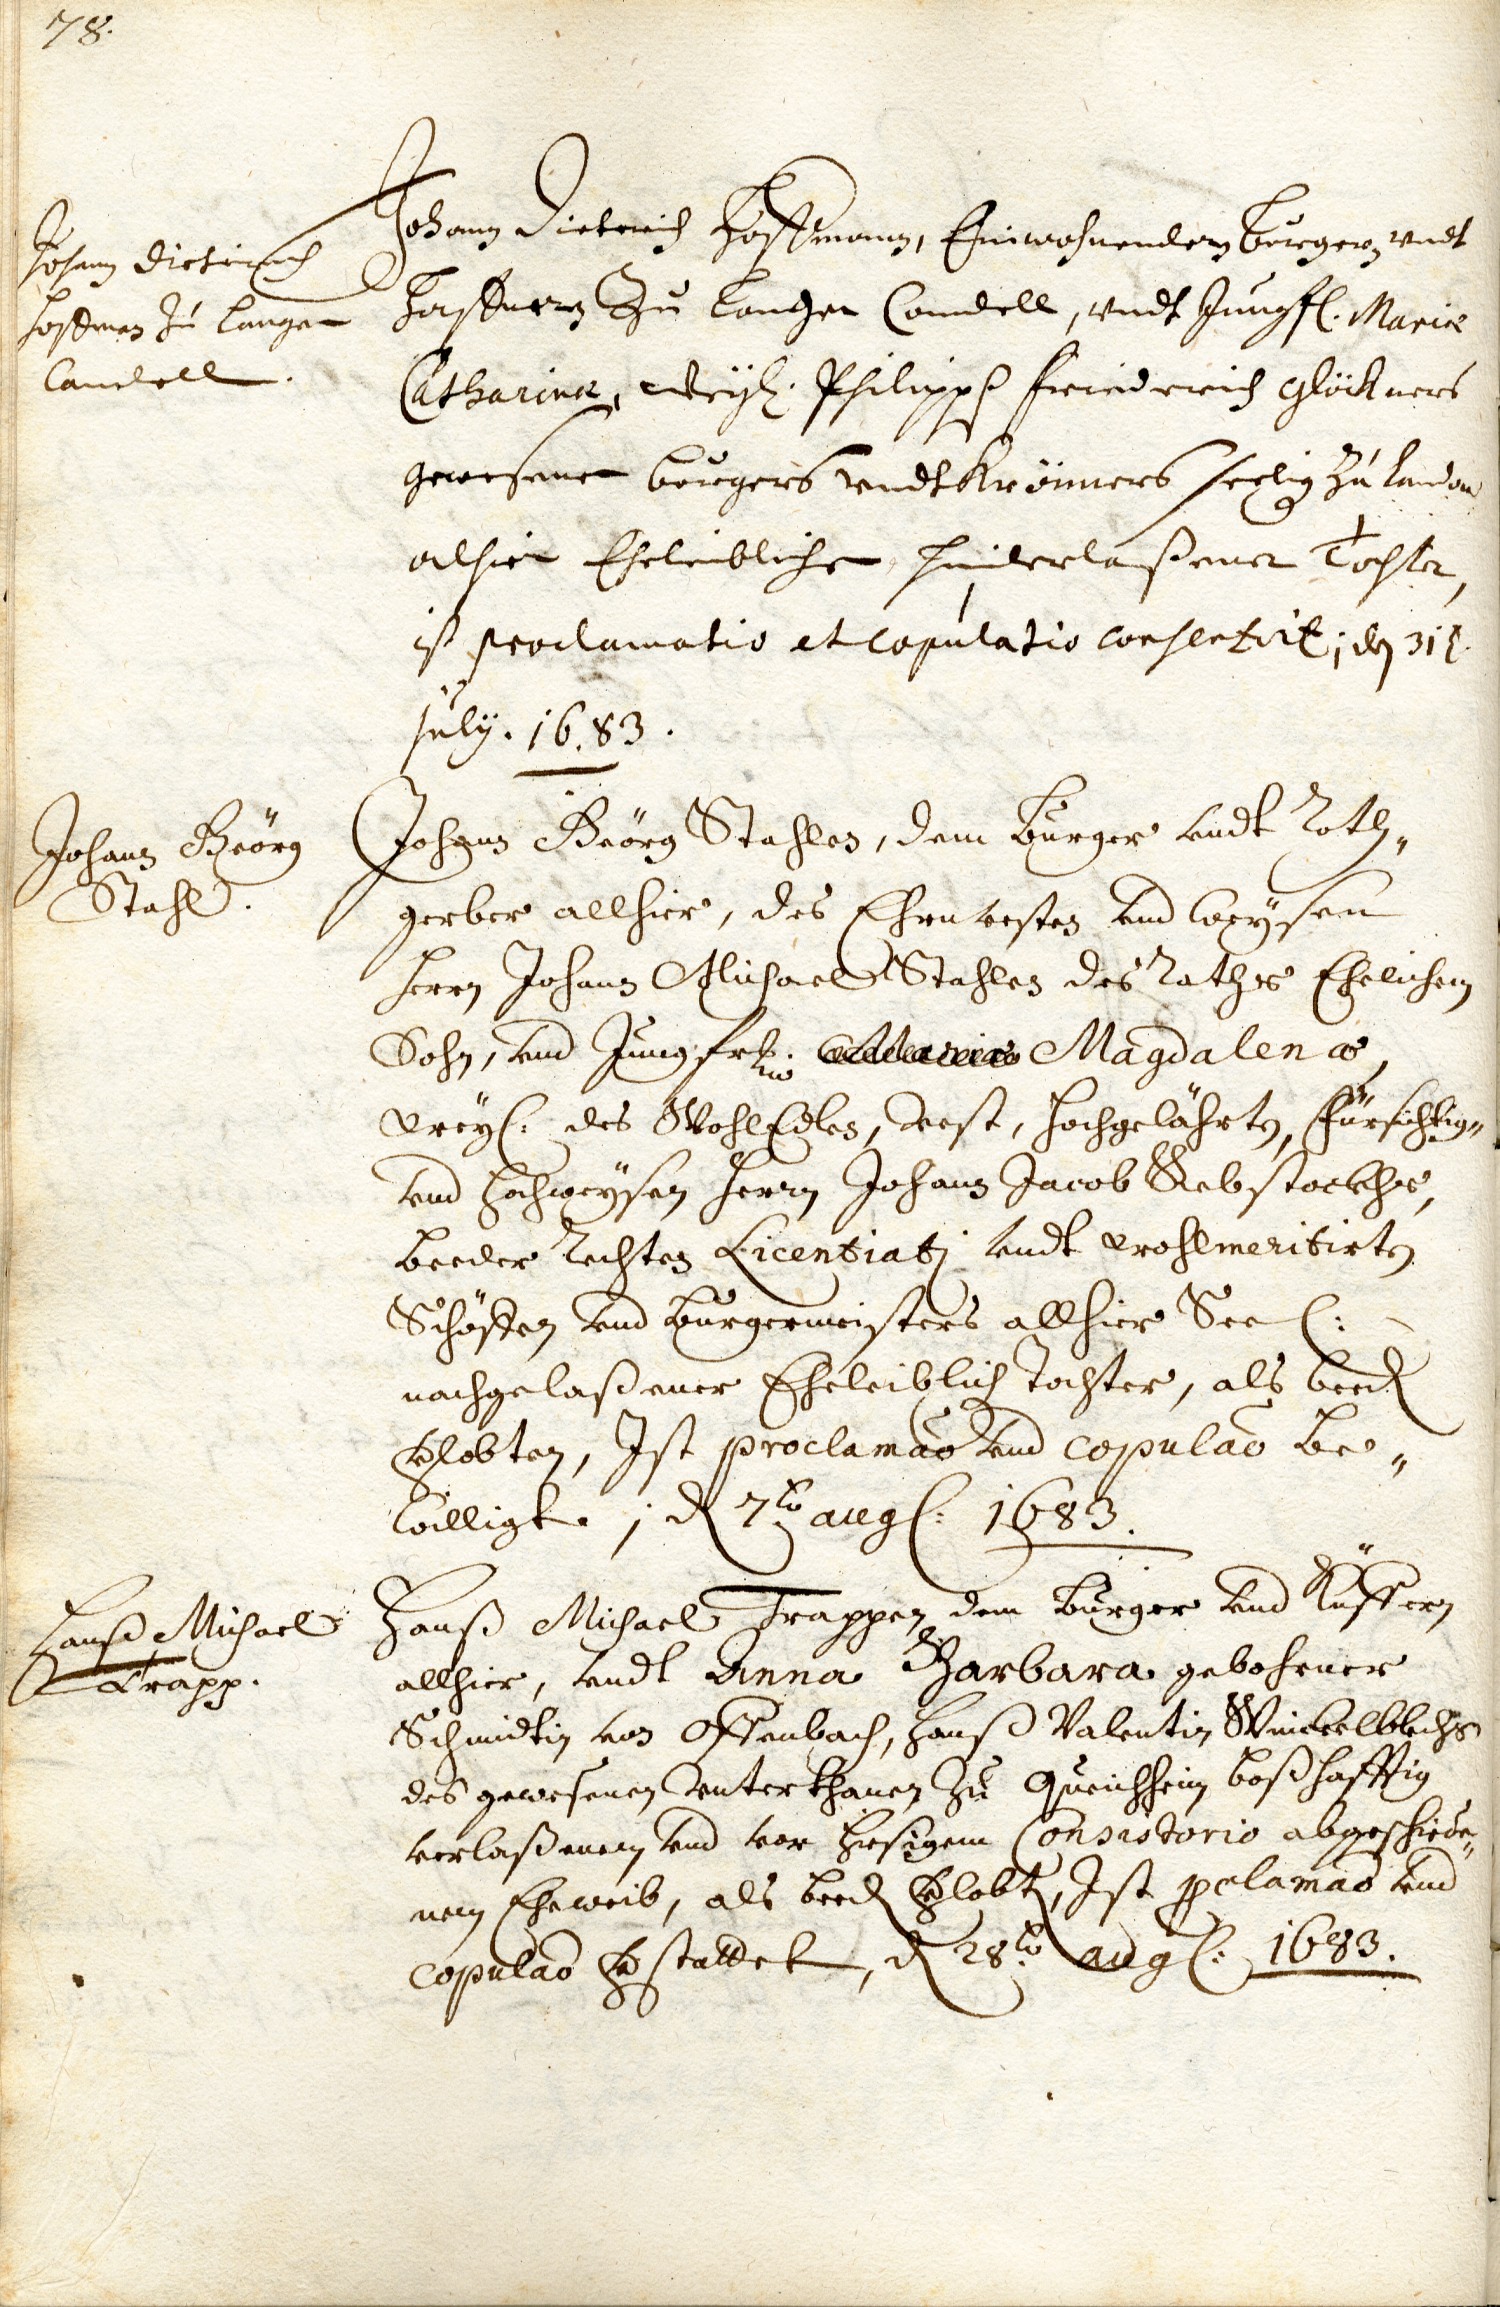 78.
Johann Dieterich
Hoffman zu Langen
Candell.
Johann Dieterich Hoffmann, Einwohnendem Burger vndt
Haffnern Zu Langen Candell, vndt Jungfl. Maria
Catharina, weyl. Philipps Friederich Glöckners
gewesenen burgers vndt Krömers seelig zu Landau
alhier Eheleibliche hinderlaßener Tochter,
ist proclamatio et copulatio ; den 31t.
July. 1683.
Johann Geörg
Stahl.
Johann Geörg Stahlen, dem Burger vndt Roth„
gerber allhier, des Ehrnvesten vnd Weysen
Herrn Johann Michael Stahlen des Raths Ehelichem
Sohn, vnd Jungfr. Magdalena,
weyl: des WohlEdlen, Vest, Hochgelährten, Fürsichtig„
vnd Hochweysen Herrn Johann Jacob Rebstockhs,
beeder Rechten Licentiati vndt wohlmeritirten
Schöffen vnd Burgermeisters allhier Seel:
nachgelaßener Eheleiblich Tochter, als beed
Vlobten, Ist proclamão vnd copulão be„
williget; d 7ten augl: 1683.
Hannß Michael
Trapp.
Hannß Michael Trappen dem Burger vnd Küffern
allhier, vndt Anna Barbara gebohrner
Schmidtin von Offenbach, Hannß Valentin Winckelblechs
des gewesenen Unterthanen Zu Queichheim boßhafftig
verlaßenem vnd vor Hiesigem Consistorio abgeschiede„
nem Eheweib, als beed Vlobt, Ist pclamão vnd
copulão Vstattet, d 28ten augl: 1683.